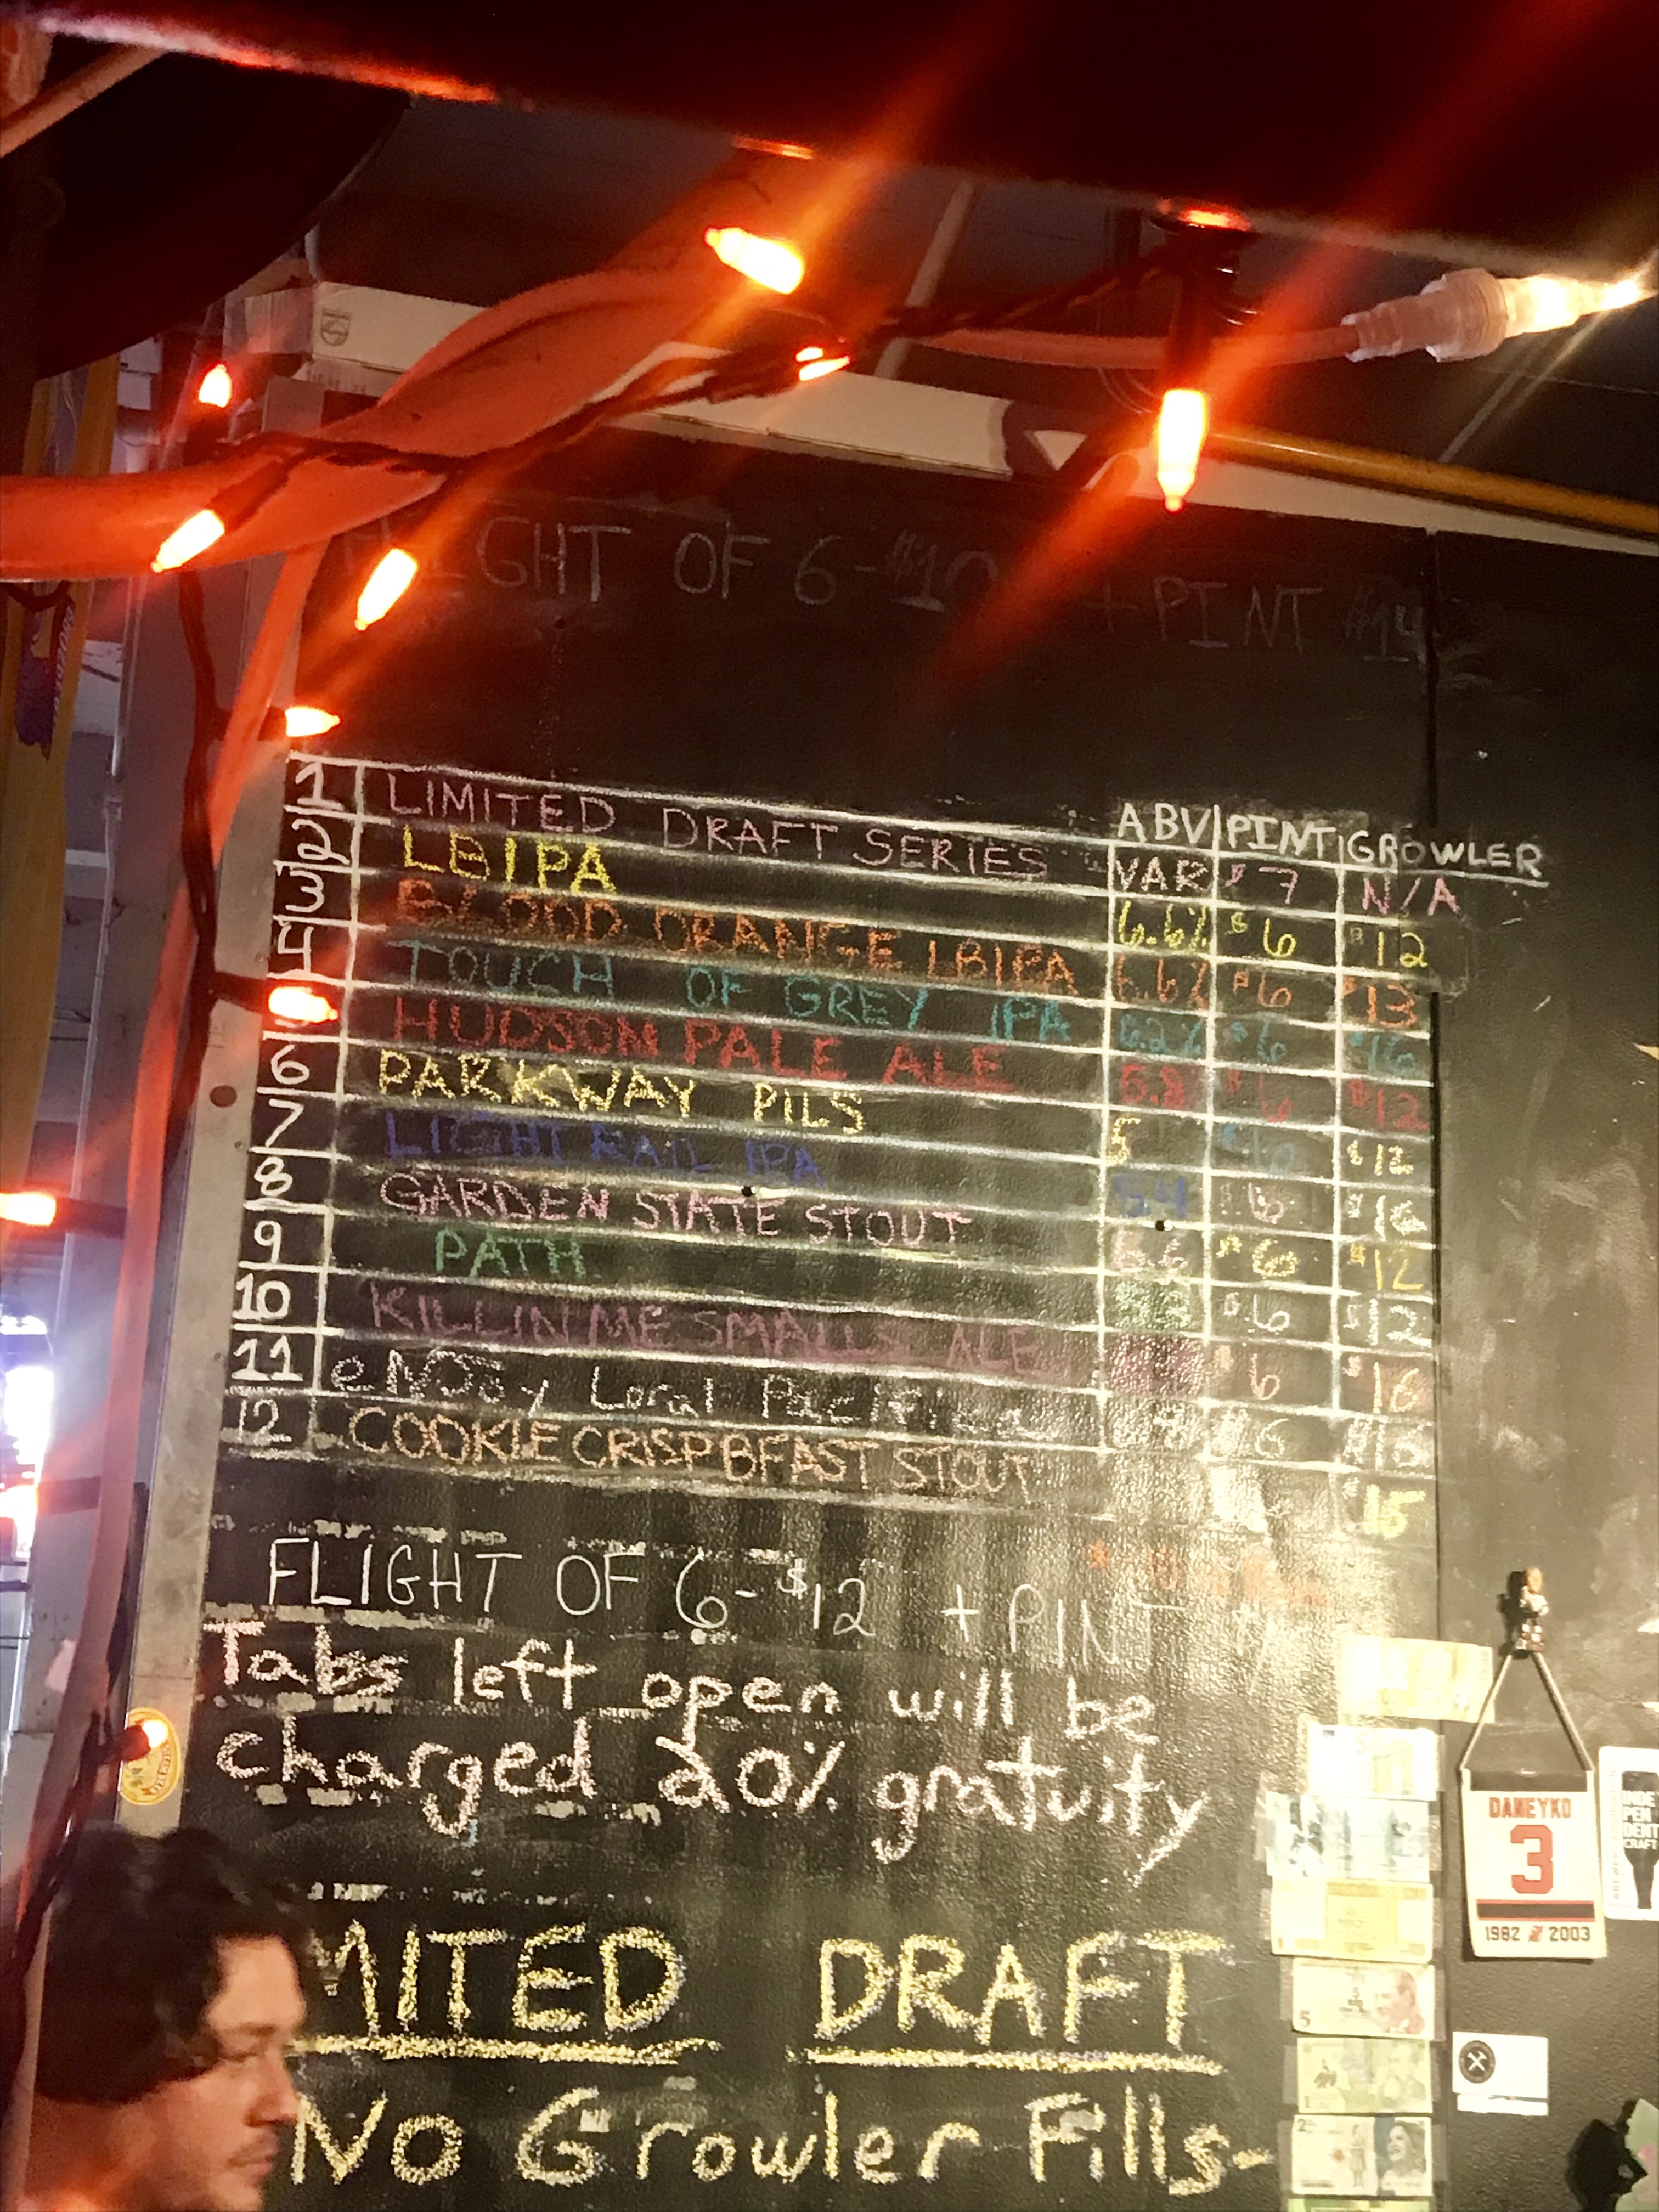 FLIGHT OF 6 - $10 + PINT $14
ABV PINT GROWLER
1 LIMITED DRAFT SERIES VAR $7 N/A
2 LBIPA 6.6% $6 $12
3 BLOOD ORANGE LBIPA 6.6% $6 $13
4 TOUCH OF GREY IPA 6.2% $6 $16
HUDSON PALE ALE 5.8 $6 $12
6 PARKWAY PILS 5 $6 $12
7 LIGHT RAIL IPA 5.4 $6 $16
8 GARDEN STATE STOUT $6 $12
9 PATH $6 $12
10 KILLIN ME SMALLS ALE $6 $16
11 eNJOy Local Pacifica $6
12 COOKIE CRISP BFAST STOUT 15
FLIGHT OF 6 - $12 + PINT
Tabs left open will be
charged 20% gratuity
MITED DRAFT
No Growler Fills-
DANEYKO
3
1982 2003
INDE
PEN
DENT
CRAFT